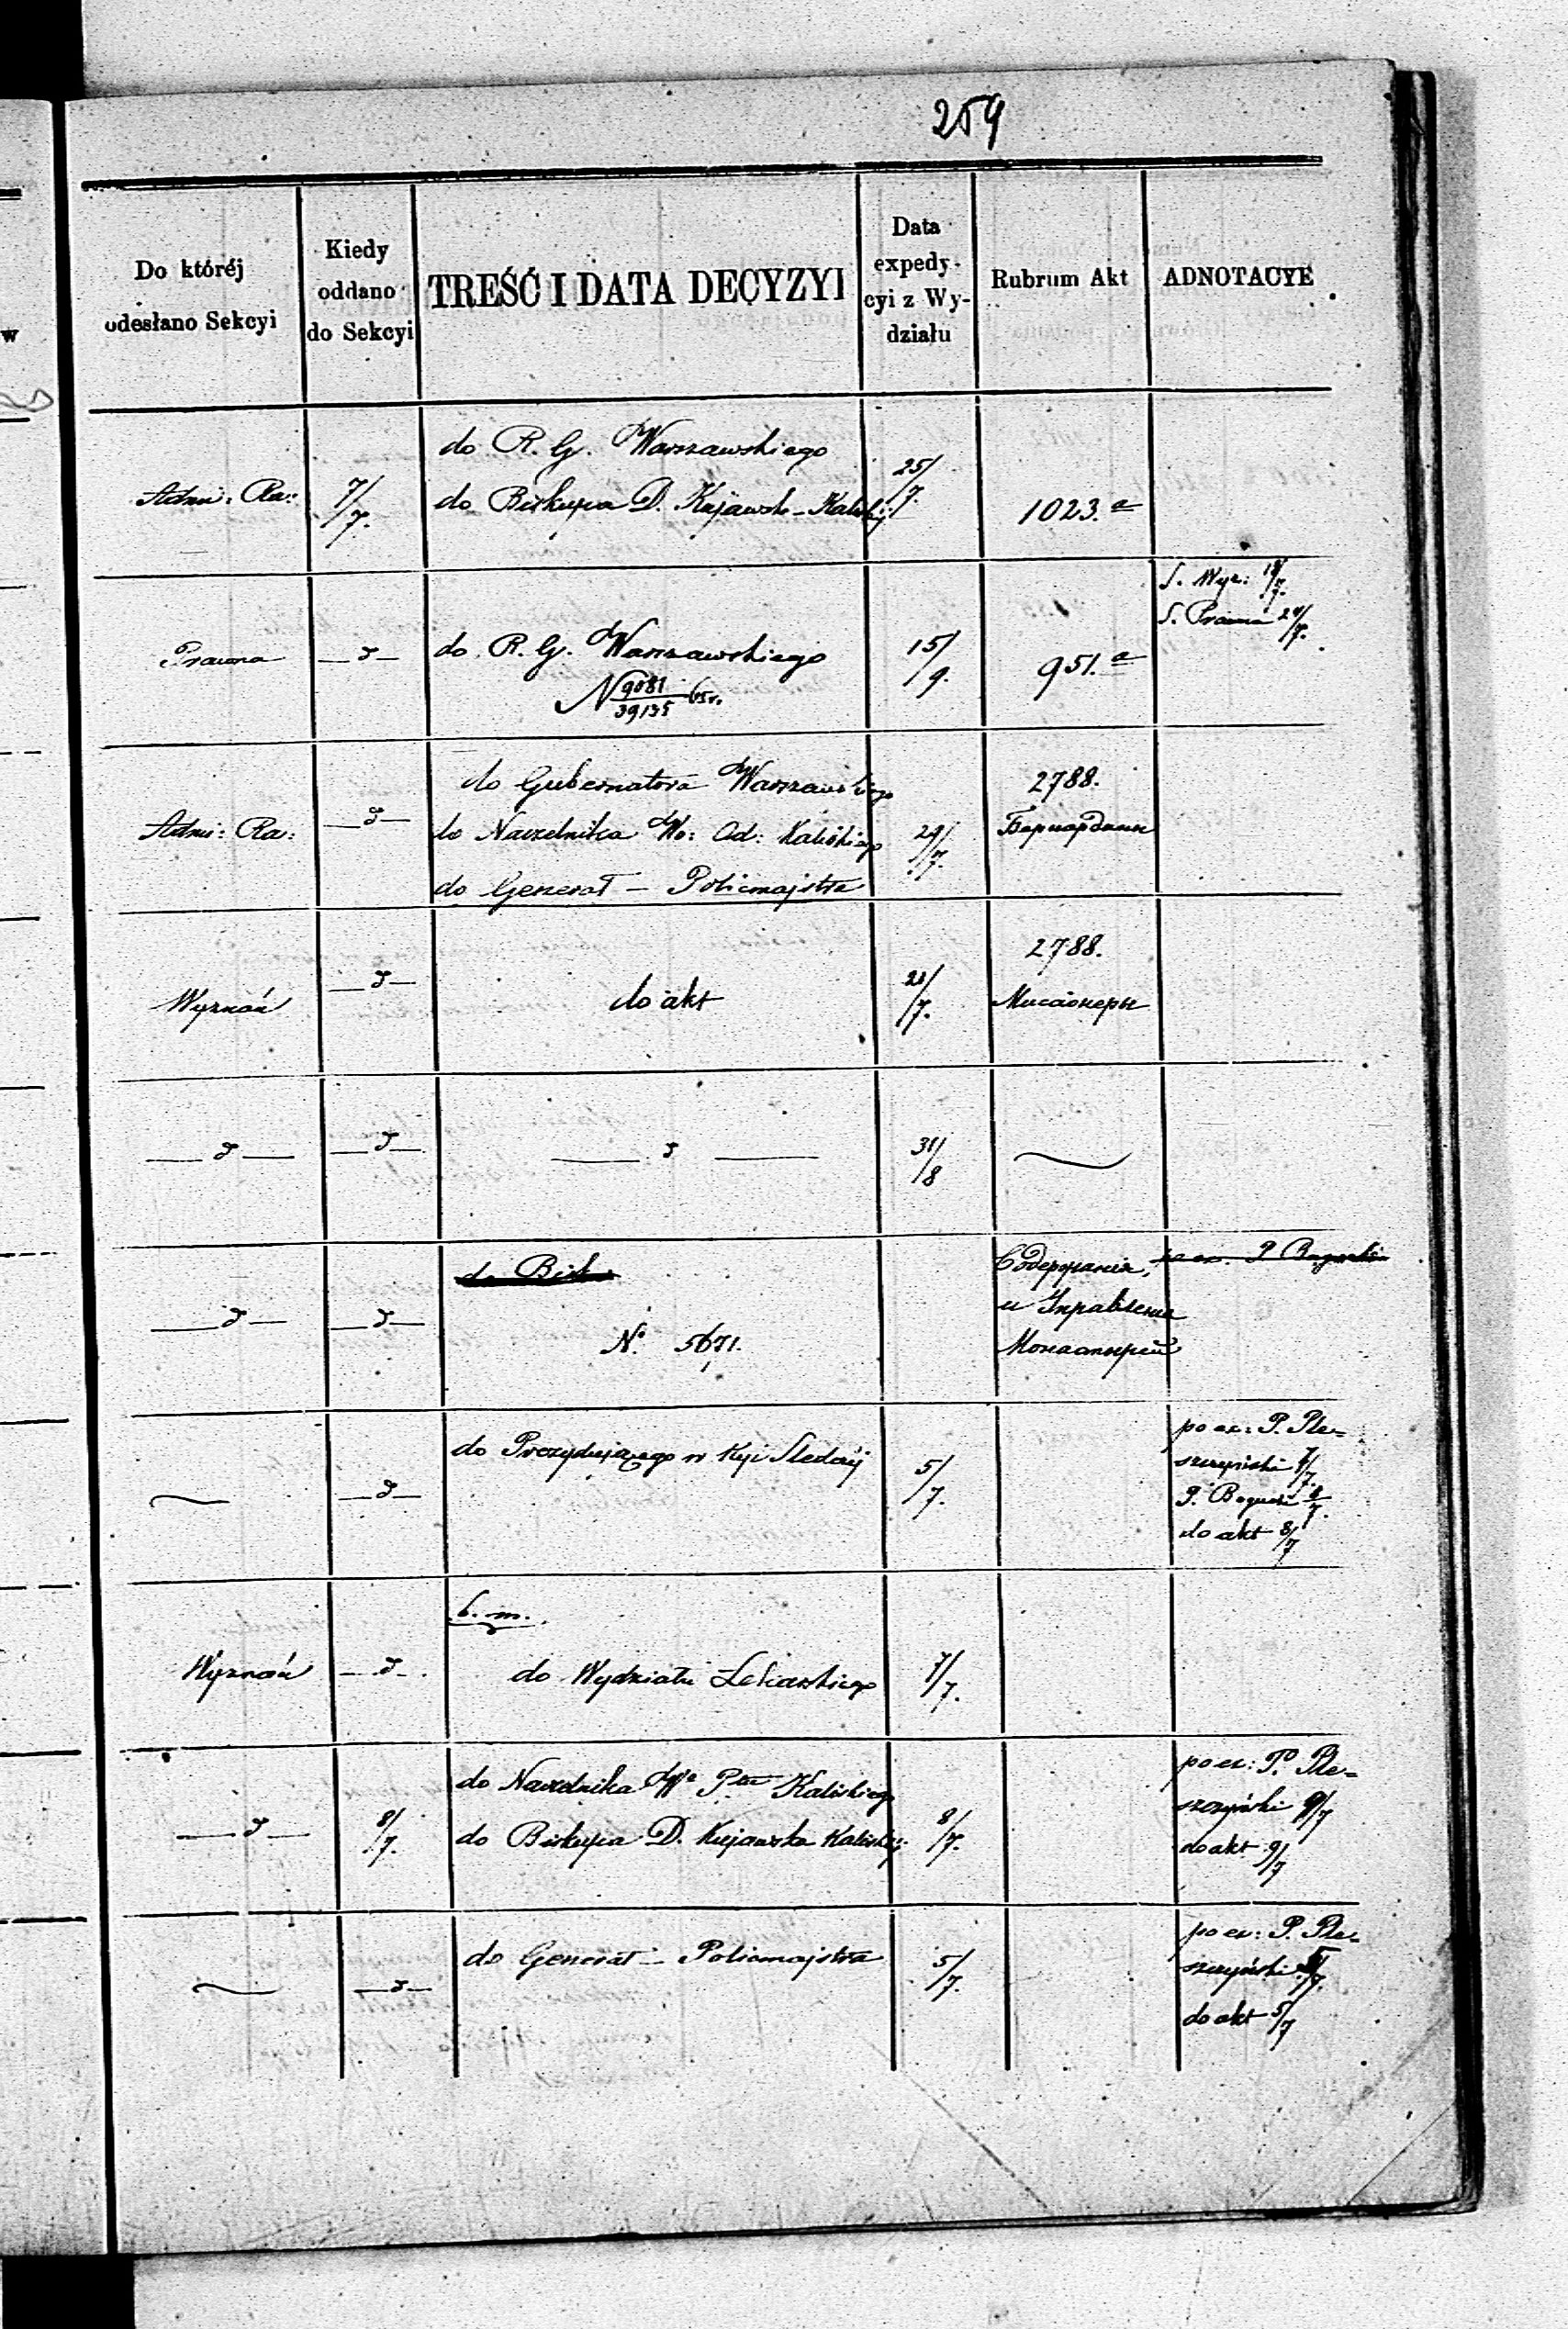 259
Do któréj odesłano Sekcyi
Kiedy oddano do Sekcyi
TREŚĆ I DATA DECYZYI
Data expedycyi z Wydziału
Rubrum Akt
ADNOTACYE
do R. G. Warszawskiego
Admi: Ra: 7/7. do Biskupa D. Kujawsk-Kaliskij 25/7. 1023. a
S. Wyz: 18/7.
S. Prawna 24/7.
Prawna — d — do R. G. Warszawskiego 15/9. 951. a
N 9081/39135
do Gubernatora Warszawskiego 2788.
Admi: Ra: — d — do Naczelnika Wo: Od: Kaliskiego 29/7. Бернардини
do Generał – Policmajstra
2788.
Wyznań — d — do akt 21/7. Мисіонеры
— d — — d — — d — 31/8
do Bisk Содержанія,
— d — — d — и Управленіе
N° 5671. Монастырей
do Prezydującego w Kyi Sledczij 5/7. po ex: P. Ple=
— d — szczyński 7/7.
P. Bogucki 8/7.
do akt 8/7
b. m.
Wyznań — d — do Wydziału Lekarskiego 7/7.
do Naczelnika Wo Ptu Kaliskiego po ex: P. Ple=
— d — 8/7. do Biskupa D. Kujawska Kaliskij 8/7. szczyński 9/7
do akt 9/7
do Generał – Policmajstra 5/7. po ex: P. Ple=
— d — szczyński 5/7.
do akt 5/7